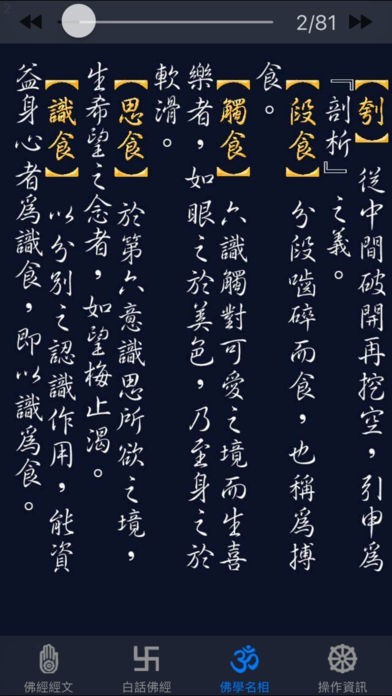 2
2/81
【刳】 從中間破開再挖空，引申為
『剖析』之義。
【段食】 分段嚙碎而食，也稱為搏
食。
【觸食】 六識觸對可愛之境而生喜
樂者，如眼之於美色，乃至身之於
軟滑。
【思食】 於第六意識思所欲之境，
生希望之念者，如望梅止渴。
【識食】 以分別之認識作用，能資
益身心者為識食，即以識為食。
佛經經文
白話佛經
佛學名相
操作資訊